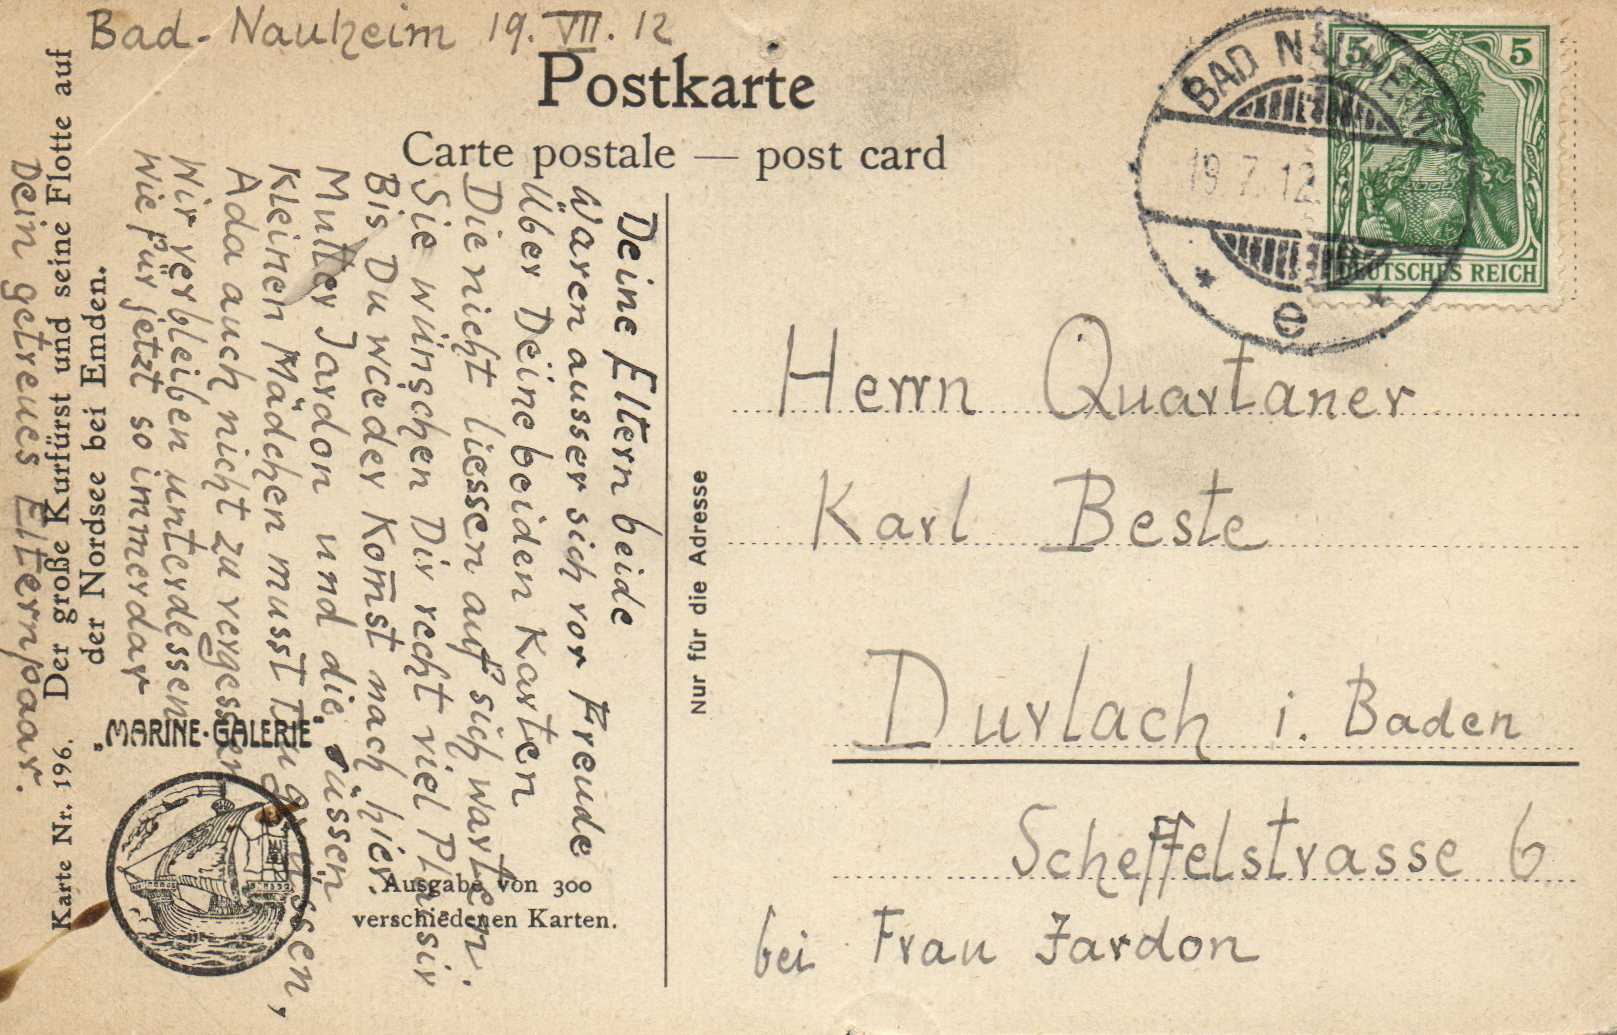 Bad-Nauheim 19. VII. 12
Postkarte
Carte postale — post card
BAD NAUHEIM
19.7.12
5
5
DEUTSCHES REICH
Deine Eltern beide
Waren ausser sich vor Freude
Über Deine beiden Karten
Die nicht liessen auf sich warten.
Sie wünschen Dir recht viel Pläsir
Bis Du wieder Kom̄st nach hier.
Mutter Jardon und die süssen
Kleinen Mädchen musst Du grüssen,
Ada auch nicht zu vergessen
Wir verbleiben unterdessen
Wie für jetzt so immerdar
Dein getreues Elternpaar.
Karte Nr. 196. Der große Kurfürst und seine Flotte auf
der Nordsee bei Emden.
„MARINE-GALERIE"
Ausgabe von 300
verschiedenen Karten.
Nur für die Adresse
Herrn Quartaner
Karl Beste
Durlach i. Baden
Scheffelstrasse 6
bei Frau Jardon